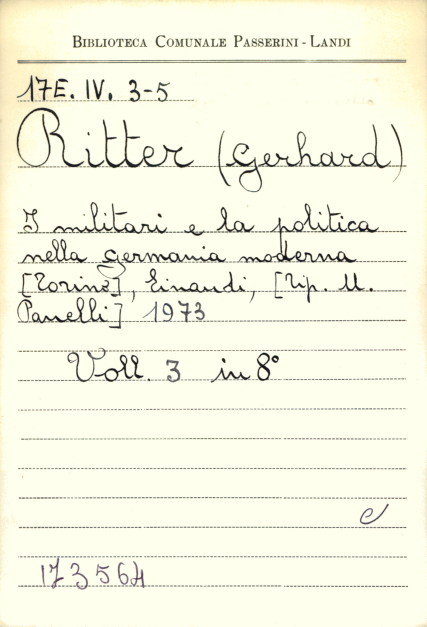 BIBLIOTECA COMUNALE PASSERINI - LANDI
17E. IV. 3-5
Ritter (Gerhard)
I militari e la politica
nella germania moderna
[Torino], Einaudi, [Tip. U.
Panelli] 1973
Voll. 3 in 8°
e
173564